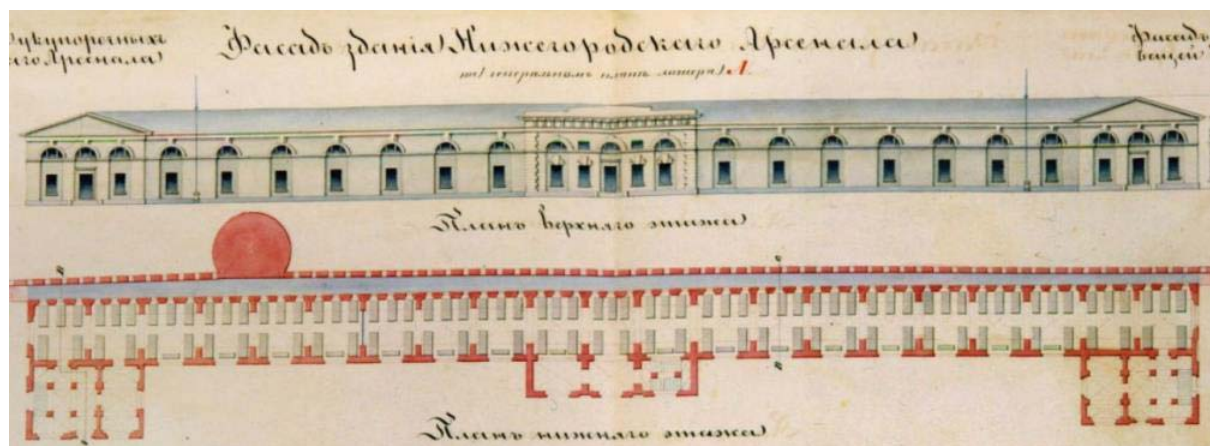 укупорочныхъ
аго Арсенала
Фасадъ зданія Нижегородскаго Арсенала
на генеральномъ планѣ литера A.
Фасадъ
вещей
Планъ верхняго этажа
Планъ нижняго этажа